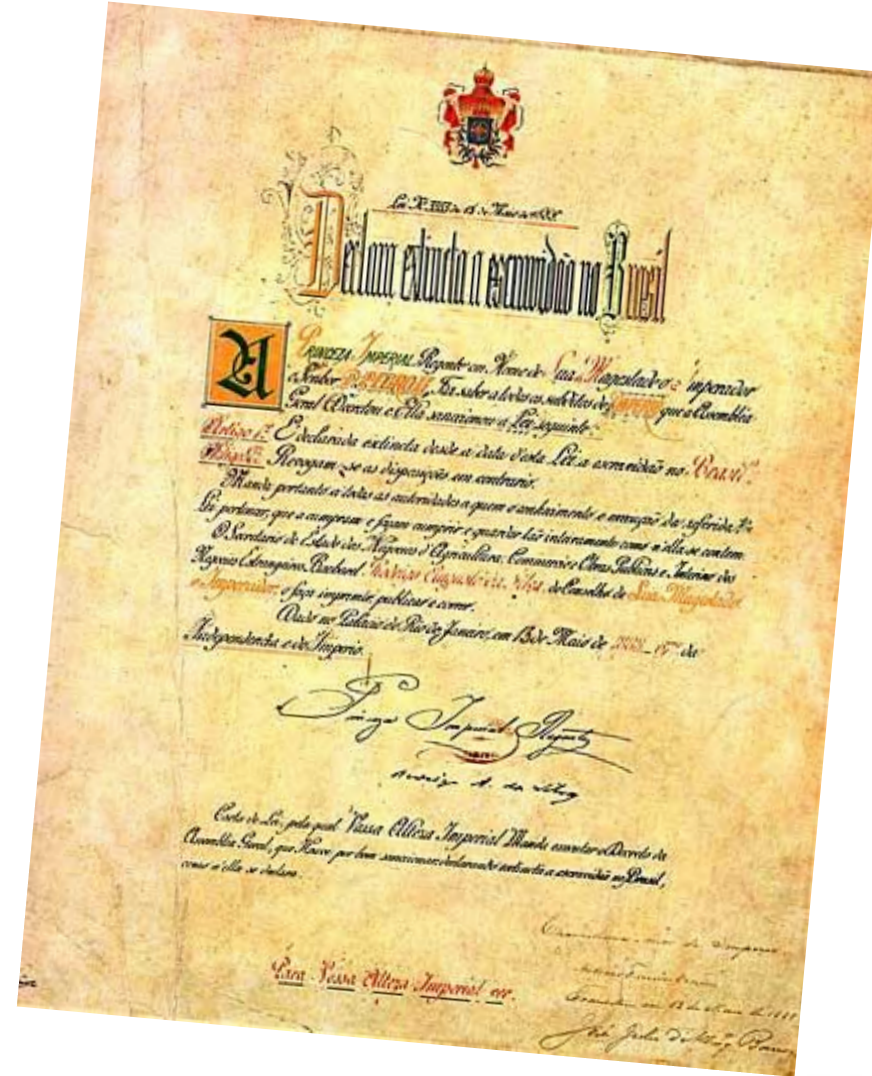 Lei Nº 3353 de 13 de Maio de 1888
Declara extincta a escravidão no Brasil
A PRINCEZA IMPERIAL Regente em Nome de Sua Magestade o Imperador
o Senhor D. PEDRO II, Faz saber a todos os subditos do IMPERIO que a Assembléa
Geral Decretou e Ella sanccionou a Lei seguinte:
Artigo 1º É declarada extincta desde a data d'esta Lei a escravidão no Brazil.
Artigo 2º Revogam-se as disposições em contrario.
Manda portanto a todas as autoridades a quem o conhecimento e execução da referida Lei
pertencer, que a cumpram e façam cumprir e guardar tão inteiramente como n'ella se contem.
O Secretario de Estado dos Negocios d'Agricultura, Commercio e Obras Publicas e Interino dos
Negocios Extrangeiros Bacharel Rodrigo Augusto da Silva do Conselho de Sua Magestade
o Imperador, o faça imprimir publicar e correr.
Dado no Palacio do Rio de Janeiro, em 13 de Maio de 1888 67º da
Independencia e do Imperio.
Princeza Imperial Regente
Rodrigo A. da Silva
Carta de Lei, pela qual Vossa Alteza Imperial Manda executar o Decreto da
Assembléa Geral, que Houve por bem sanccionar declarando extincta a escravidão no Brazil,
como n'ella se declara.
Para Vossa Alteza Imperial ver.
do Imperio
em 13 de Maio de 1888
José Julio d'Albuq. Barros